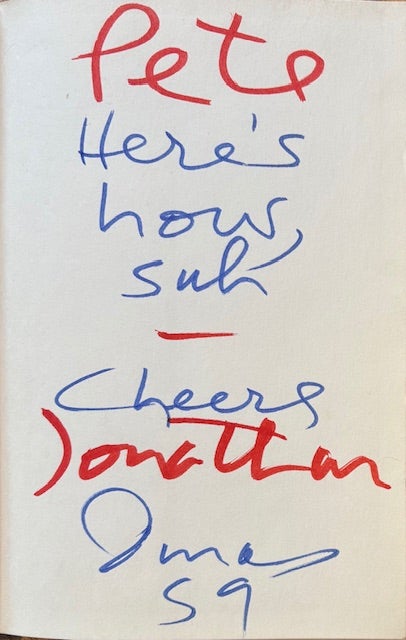 Pete
Here's
how,
suh
—
Cheers
Jonathan
Xmas
59